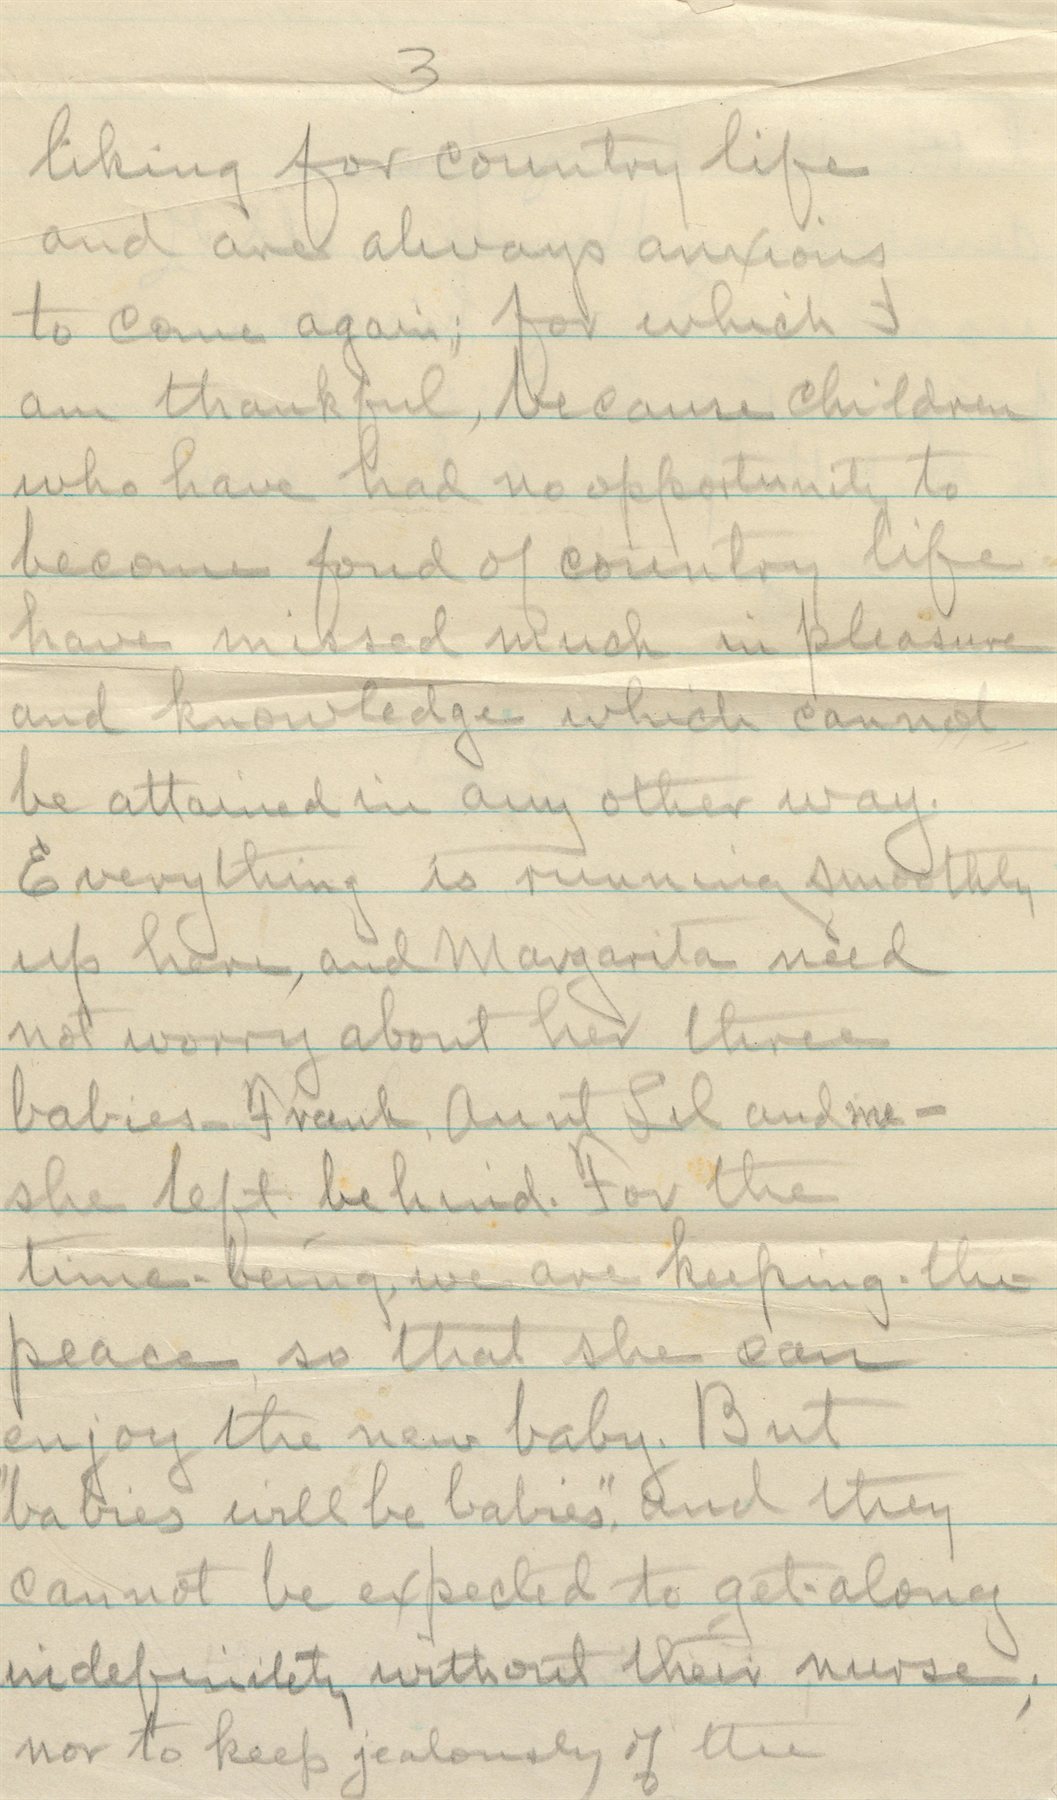 3
liking for country life
and are always anxious
to come again; for which I
am thankful, because children
who have had no opportunity to
become fond of country life
have missed much in pleasure
and knowledge which cannot
be attained in any other way.
Everything is running smoothly
up here, and Margarita need
not worry about her three
babies - Frank, Aunt Lil and me -
she left behind. For the
time-being, we are keeping the
peace, so that she can
enjoy the new baby. But
"babies will be babies", and they
cannot be expected to get along
indefinitely without their nurse;
nor to keep jealously of the